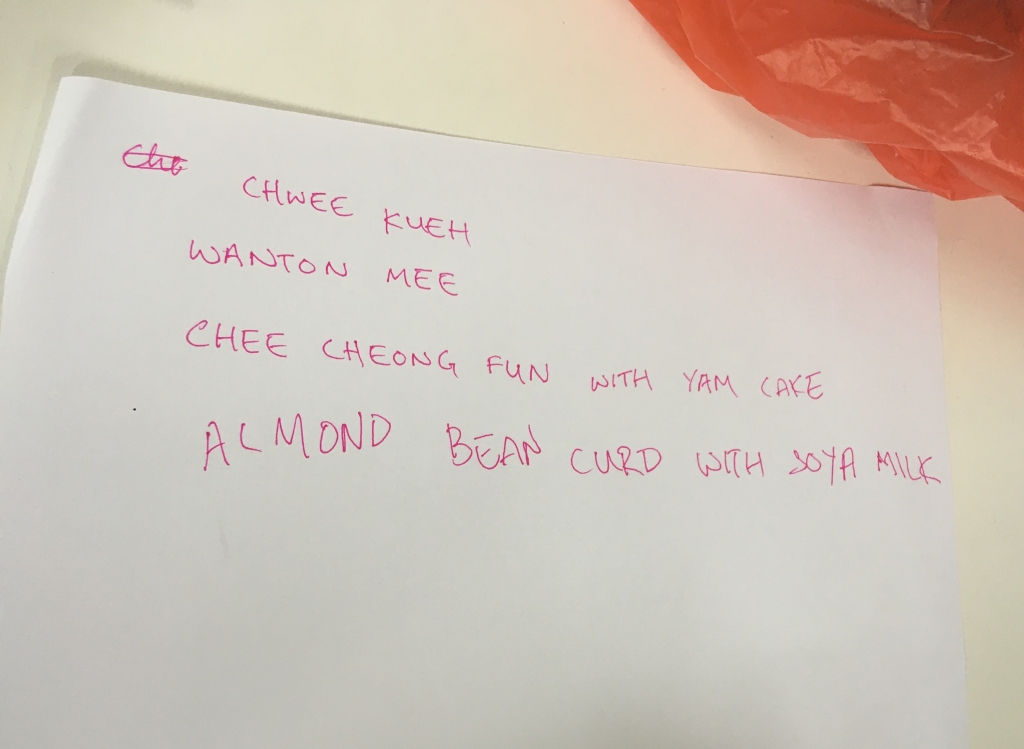 CHWEE KUEH
WANTON MEE
CHEE CHEONG FUN WITH YAM CAKE
ALMOND BEAN CURD WITH SOYA MILK